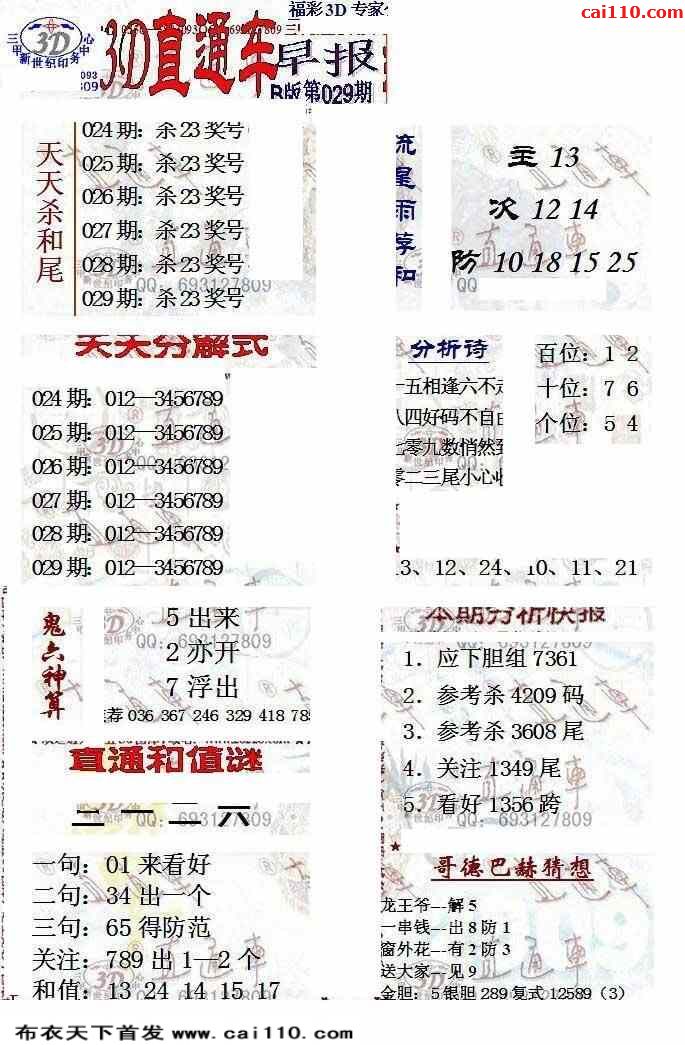 福彩3D 专家
cai110.com
3D
新世纪印务
3D直通车
早报
B版第029期
天天杀和尾
024期：杀23奖号
025期：杀23奖号
026期：杀23奖号
027期：杀23奖号
028期：杀23奖号
029期：杀23奖号
流星雨荐和
主 13
次 12 14
防 10 18 15 25
天天分解式
024期：012—3456789
025期：012—3456789
026期：012—3456789
027期：012—3456789
028期：012—3456789
029期：012—3456789
分析诗
五相逢六不走
八四好码不自由
零九数悄然到
零二三尾小心收
百位：1 2
十位：7 6
个位：5 4
13、12、24、10、11、21
鬼六神算
5 出来
2 亦开
7 浮出
荐 036 367 246 329 418 785
本期分析快报
1．应下胆组 7361
2．参考杀 4209 码
3．参考杀 3608 尾
4．关注 1349 尾
5．看好 1356 跨
直通和值谜
二一二六
QQ：693127809
一句：01 来看好
二句：34 出一个
三句：65 得防范
关注：789 出 1—2 个
和值：13 24 14 15 17
哥德巴赫猜想
龙王爷---解 5
一串钱---出 8 防 1
窗外花---有 2 防 3
送大家---见 9
金胆：5 银胆 289 复式 12589（3）
布衣天下首发 www.cai110.com